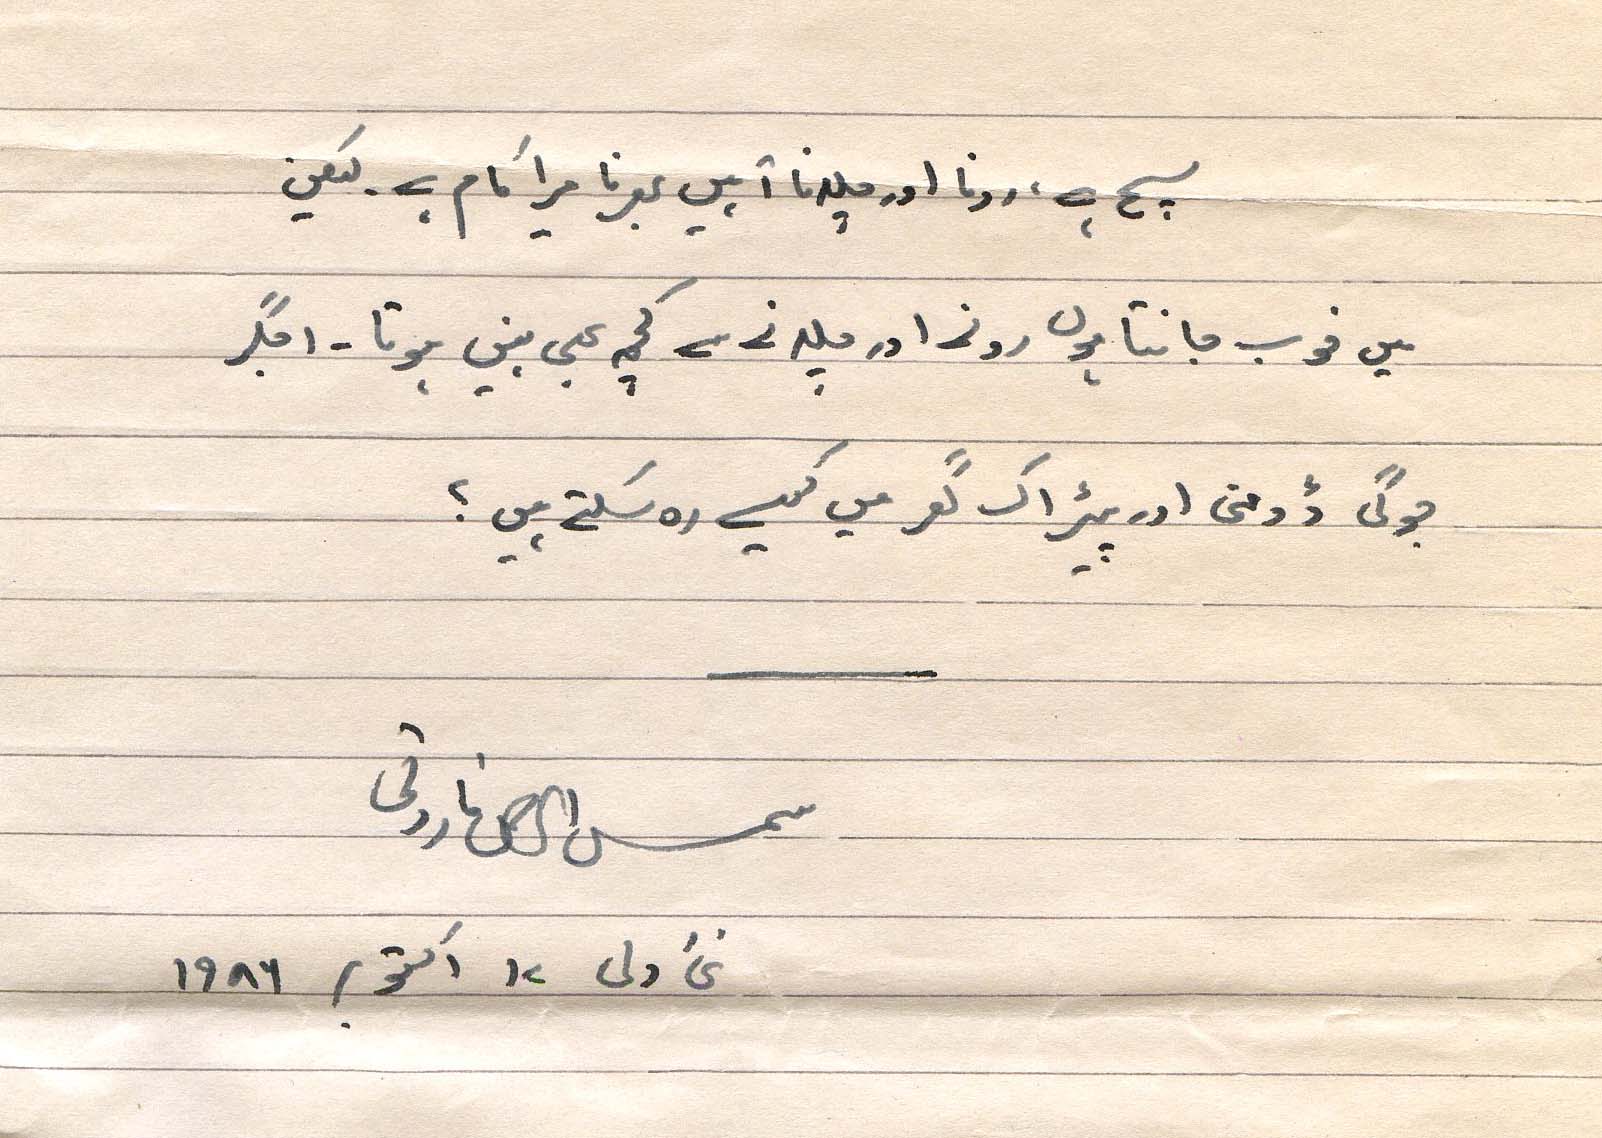 سچ ہے، رونا اور چلانا آہیں بھرنا میرا کام ہے۔ لیکن
میں خوب جانتا ہوں رونے اور چلانے سے کچھ بھی نہیں ہوتا۔ اجگر
جوگی ڈومنی اور پیڑ اک گھر میں کیسے رہ سکتے ہیں؟
شمس الرحمٰن فاروقی
نئی دلی اکتوبر ۱۹۸۶